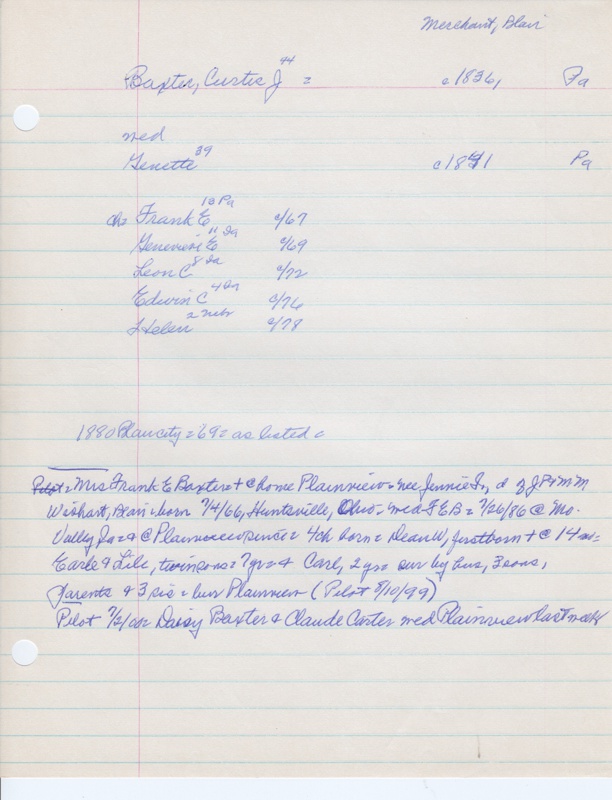 Merchant, Blair
Baxter, Curtis J 44 = c1836, Pa
med
Genette 39 c1841 Pa
ch= Frank E 13 Pa c/67
Genevieve E 11 Ia c/69
Leon C 8 Ia c/72
Edwin C 4 Ia c/76
Helen 2 Nebr c/78
1880 Blair city = 69 = as listed =
Pilot = Mrs Frank E Baxter = + @ home Plainview = nee Jennie In, d of J P & M M
Wishart, Blair = born 7/4/66, Huntsville, Ohio = med F E B = 7/26/86 @ Mo.
Vally Ia = & @ Plainview since = 4 ch born = Dean W, firstborn + @ 14 mo =
Earle & Lile, twin sons = 7 yr = & Carl, 2 yr = sur by hus, 3 sons,
parents & 3 sis = bur Plainview (Pilot 8/10/99)
Pilot 7/2/00 = Daisy Baxter & Claude Carter med Plainview last week